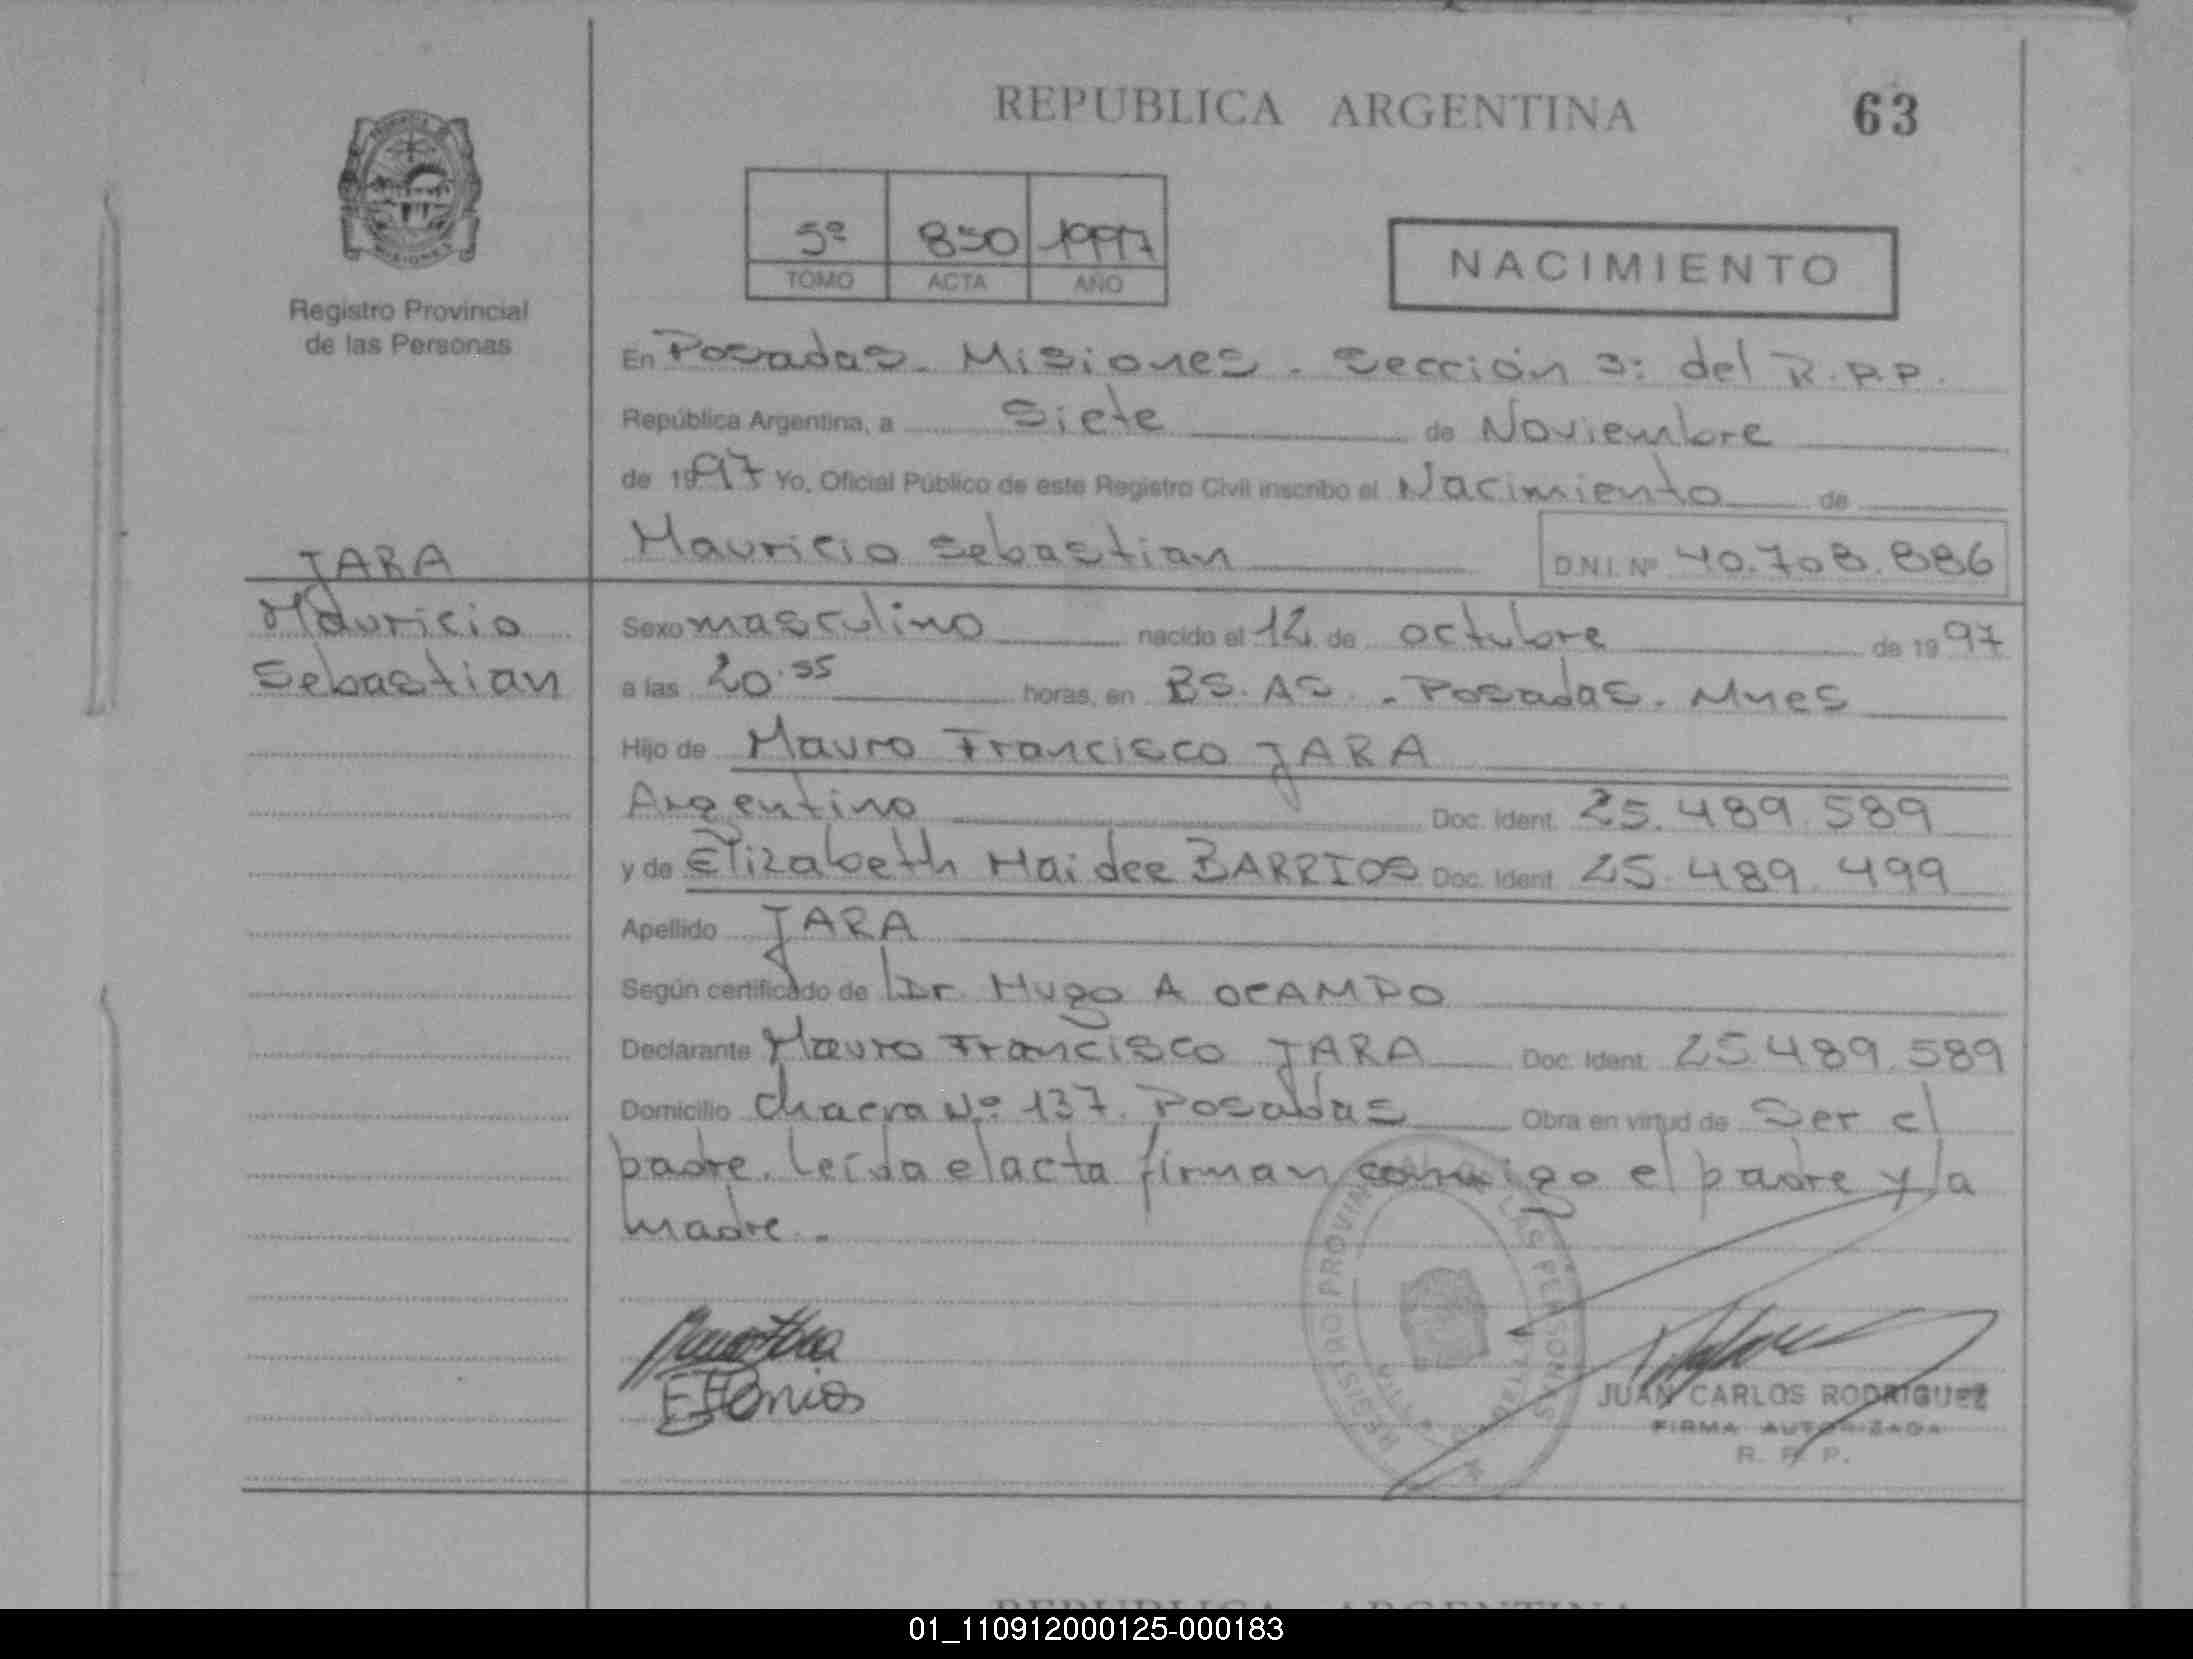 REPUBLICA ARGENTINA
63
Registro Provincial
de las Personas
5º 850 1997
TOMO ACTA AÑO
NACIMIENTO
En Posadas - Misiones - Sección 3: del R.P.P.
República Argentina, a Siete de Noviembre
de 1997 Yo, Oficial Público de este Registro Civil inscribo el Nacimiento de
Mauricio Sebastian D.N.I. Nº 40.708.886
JARA
Mauricio
Sebastian
Sexo masculino nacido el 12 de octubre de 1997
a las 20.35 horas, en BS. AS. - Posadas. Mnes
Hijo de Mauro Francisco JARA
Argentino Doc. Ident. 25.489.589
y de Elizabeth Haidee BARRIOS Doc. Ident. 25.489.499
Apellido JARA
Según certificado de Dr Hugo A OCAMPO
Declarante Mauro Francisco JARA Doc. Ident. 25.489.589
Domicilio Chacra Nº 137. Posadas Obra en virtud de Ser el
padre. Leída el acta firman conmigo el padre y la
madre. -
REGISTRO PROVINCIAL DE LAS PERSONAS
JUAN CARLOS RODRIGUEZ
FIRMA AUTORIZADA
R. P. P.
REPUBLICA ARGENTINA
01_110912000125-000183